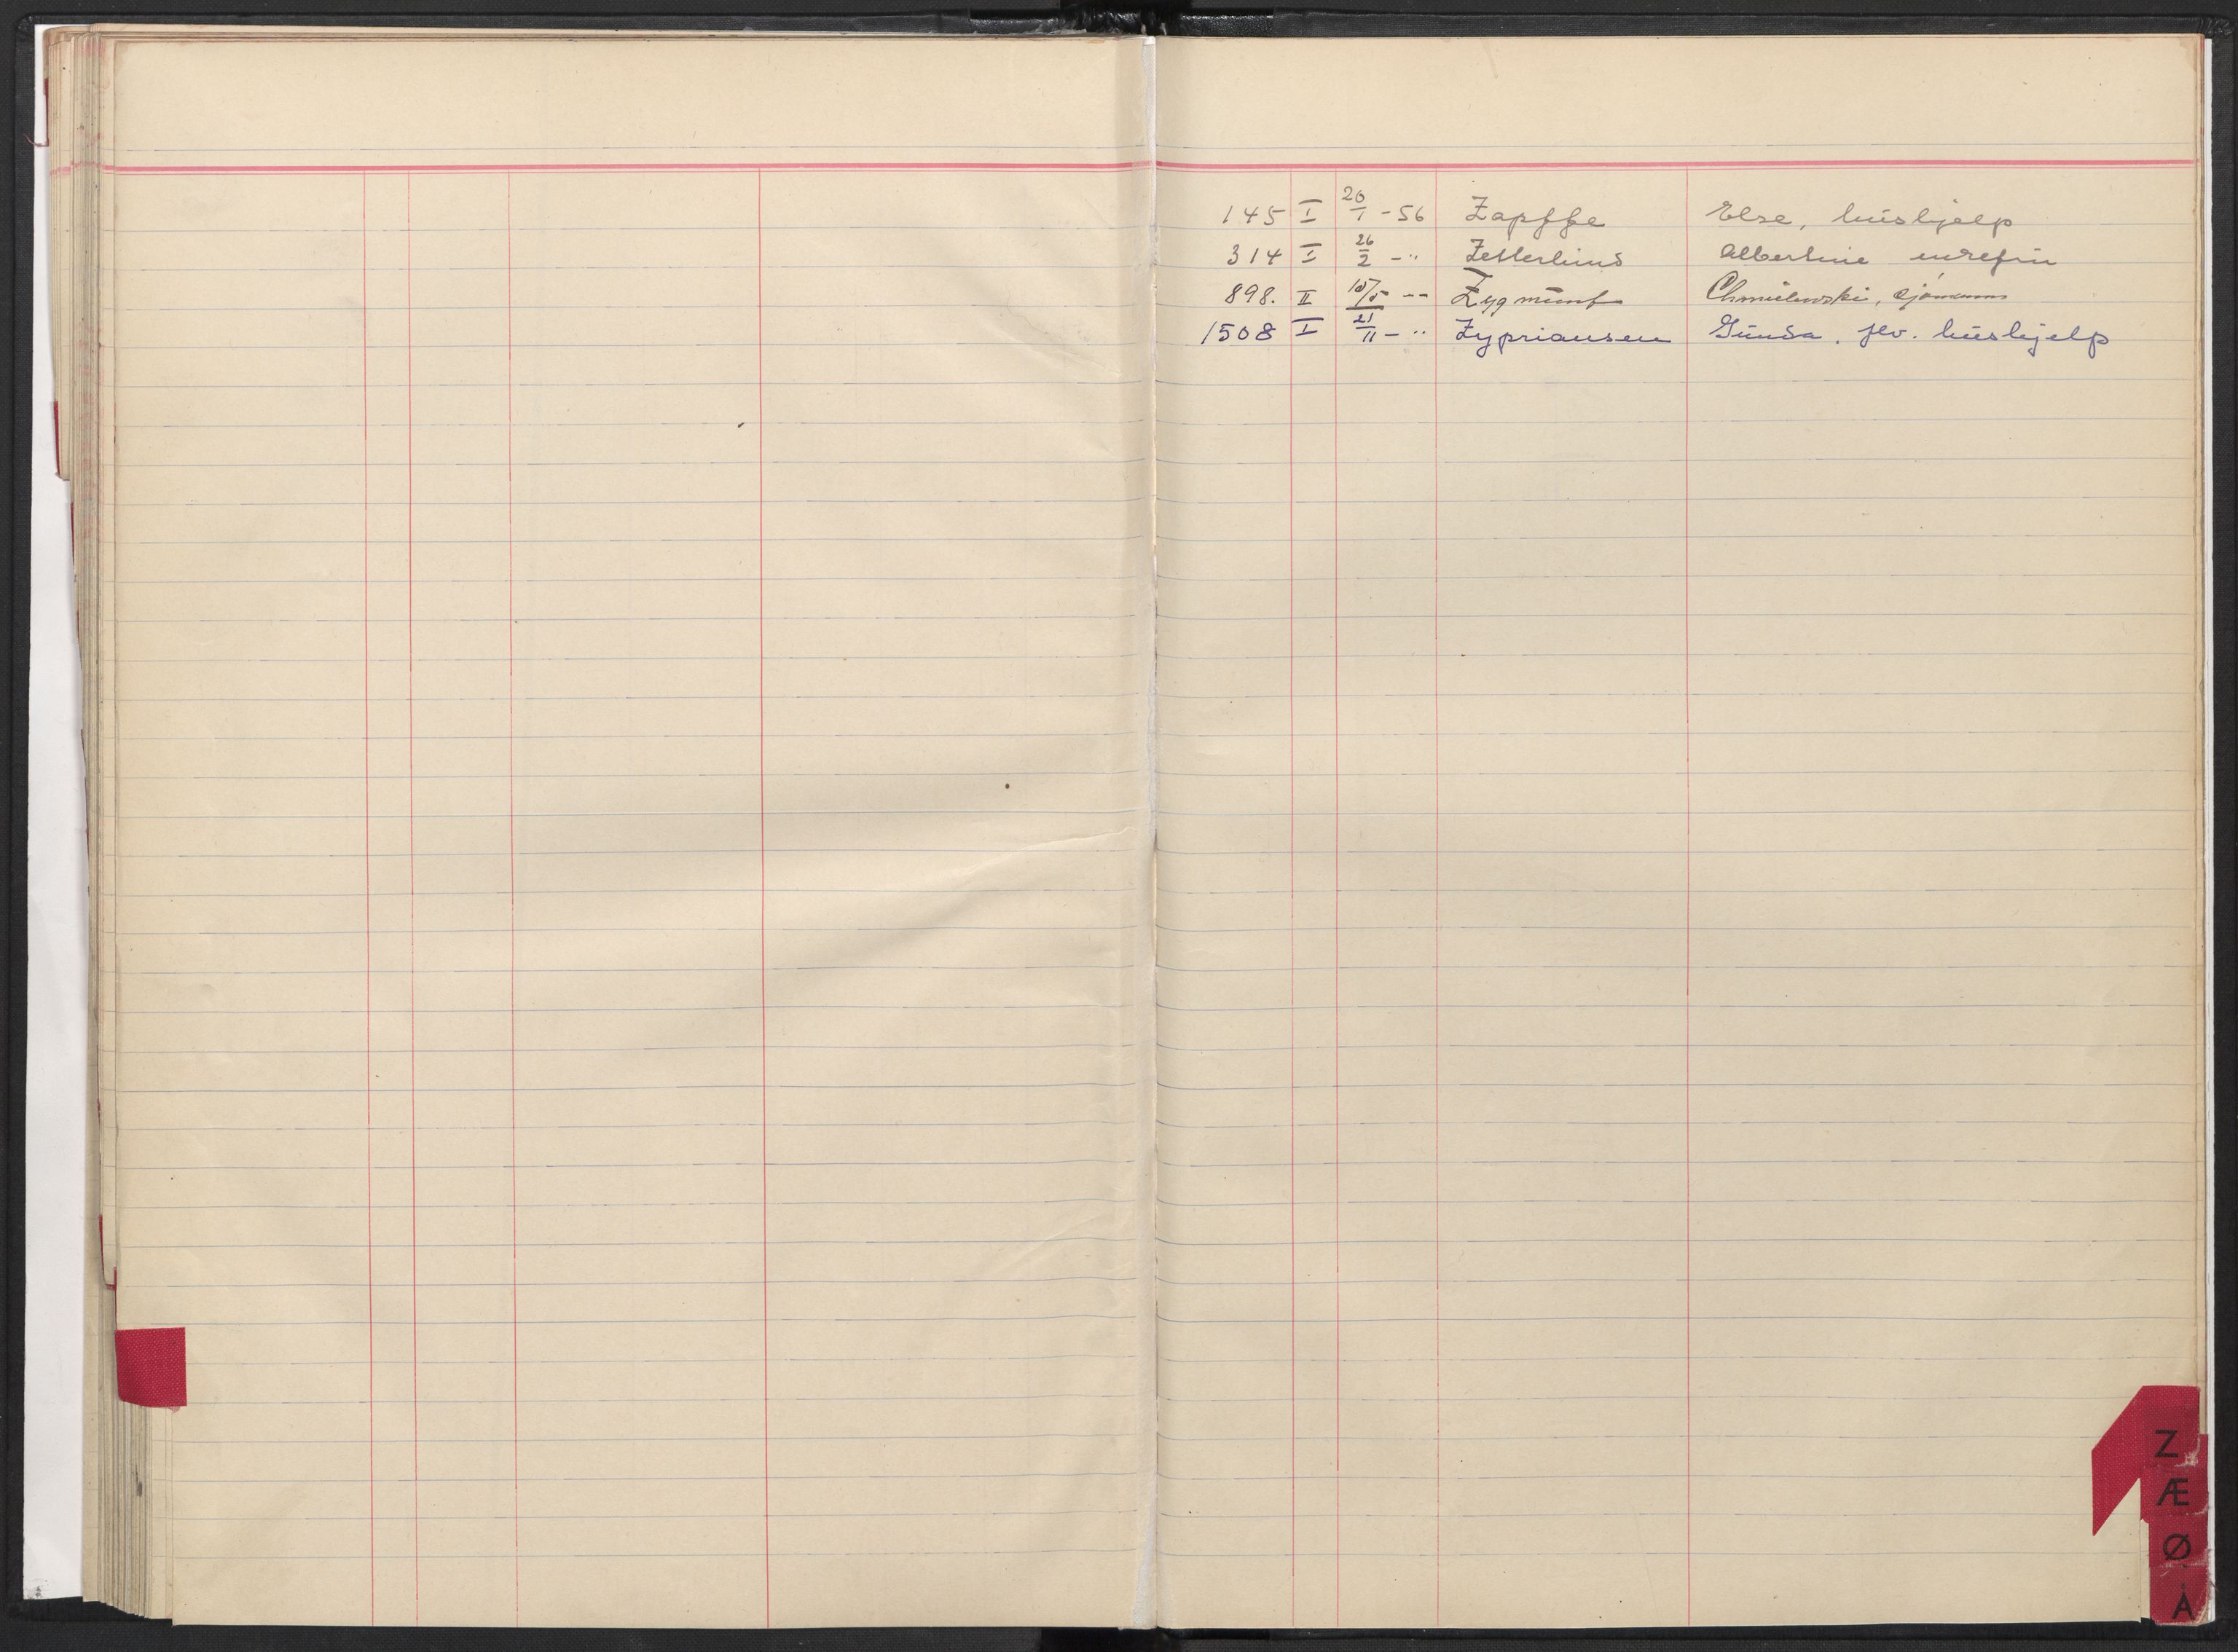 145 I 20/1 -56 Zapffe Else, hüshjelp
314 I 26/2 -" Zetterlünd Albertine enkefrü
898. II 15/5 -- Zygmünt Chmielewski, sjømann
1508 I 21/11 -" Zypriansen Günda. flv. hüshjelp
Z
Æ
Ø
Å